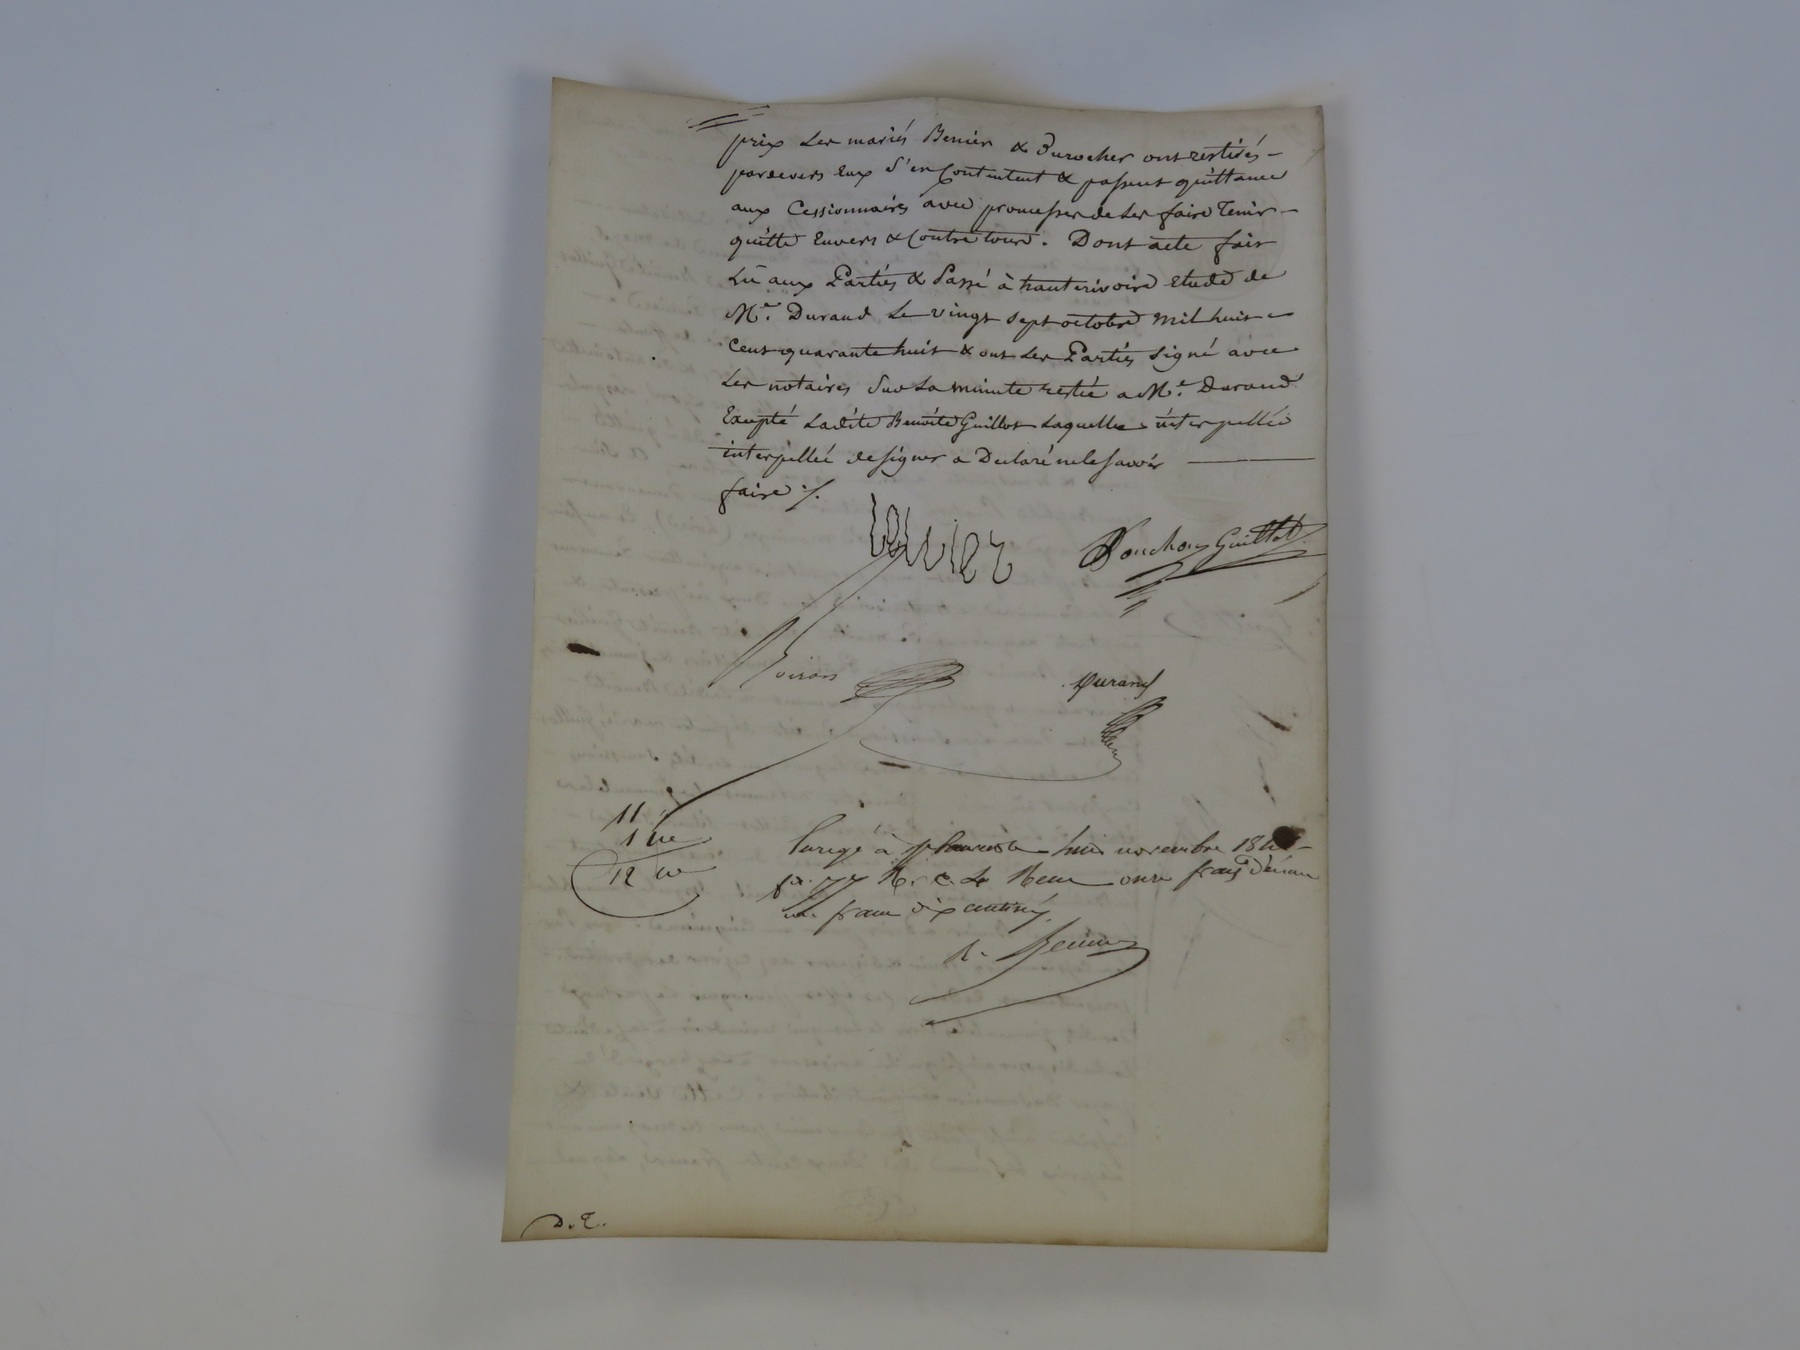 prix les mariés Benier & Durocher ont restirés -
pardevers eux s'en Contentent & passent quittance
aux Cessionnaires avec promesses de les faire Tenir -
quitte Envers & Contre tous. Dont acte fait
Lû aux Parties & Passé à hauterivoire Etude de
Me. Durand Le vingt sept octobre mil huit -
Cent quarante huit & ont Les Parties signé avec
Les notaires sur La minute restée a Me. Durand
Excepté Ladite Benoite Guillot Laquelle interpellée
interpellée de signer a Declaré ne le savoir
faire ./.
Ponchon Guillot
Durand
11
1
12
à huit novembre
Rc. Le Reçu onze francs Décime
un franc dix centimes.
D.E.